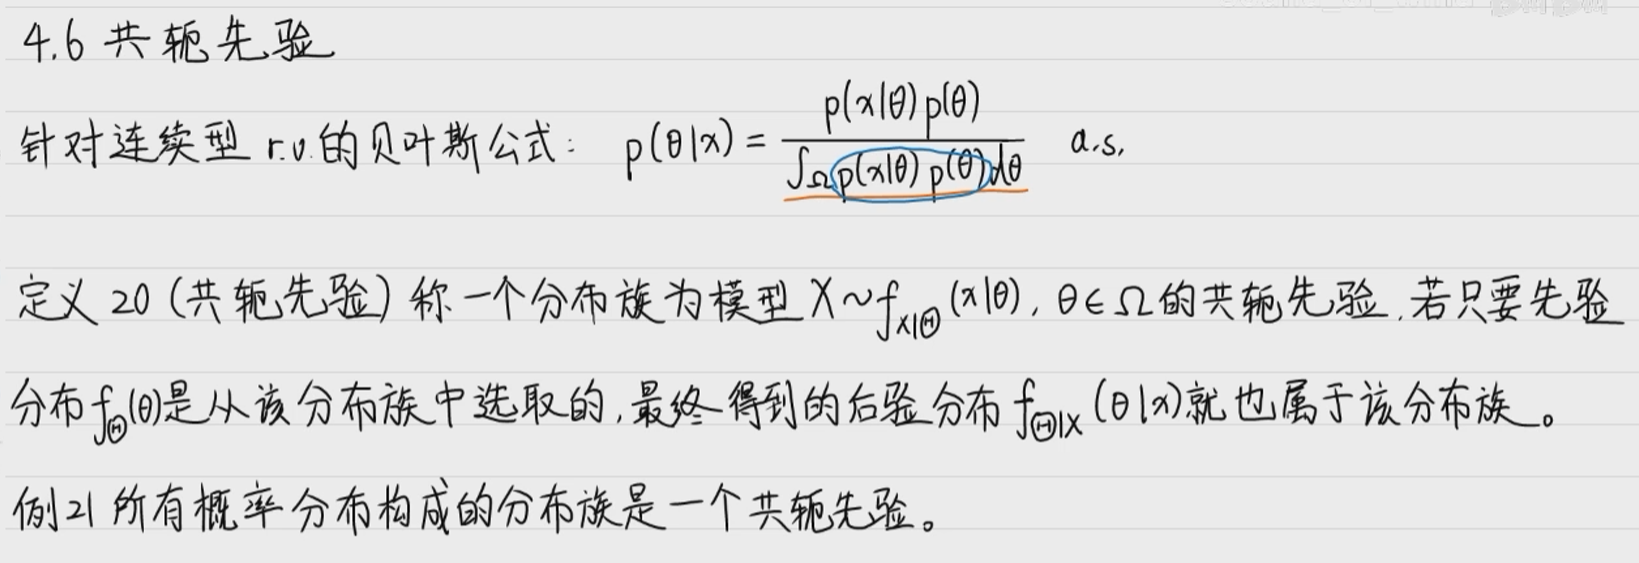 4.6 共轭先验
针对连续型 r.v.的贝叶斯公式: p(θ|x) = p(x|θ)p(θ) / ∫_Ω p(x|θ)p(θ)dθ a.s.
定义 20 (共轭先验) 称一个分布族为模型 X~f_{X|Θ}(x|θ), θ∈Ω的共轭先验,若只要先验
分布f_Θ(θ)是从该分布族中选取的,最终得到的后验分布 f_{Θ|X}(θ|x)就也属于该分布族。
例21 所有概率分布构成的分布族是一个共轭先验。